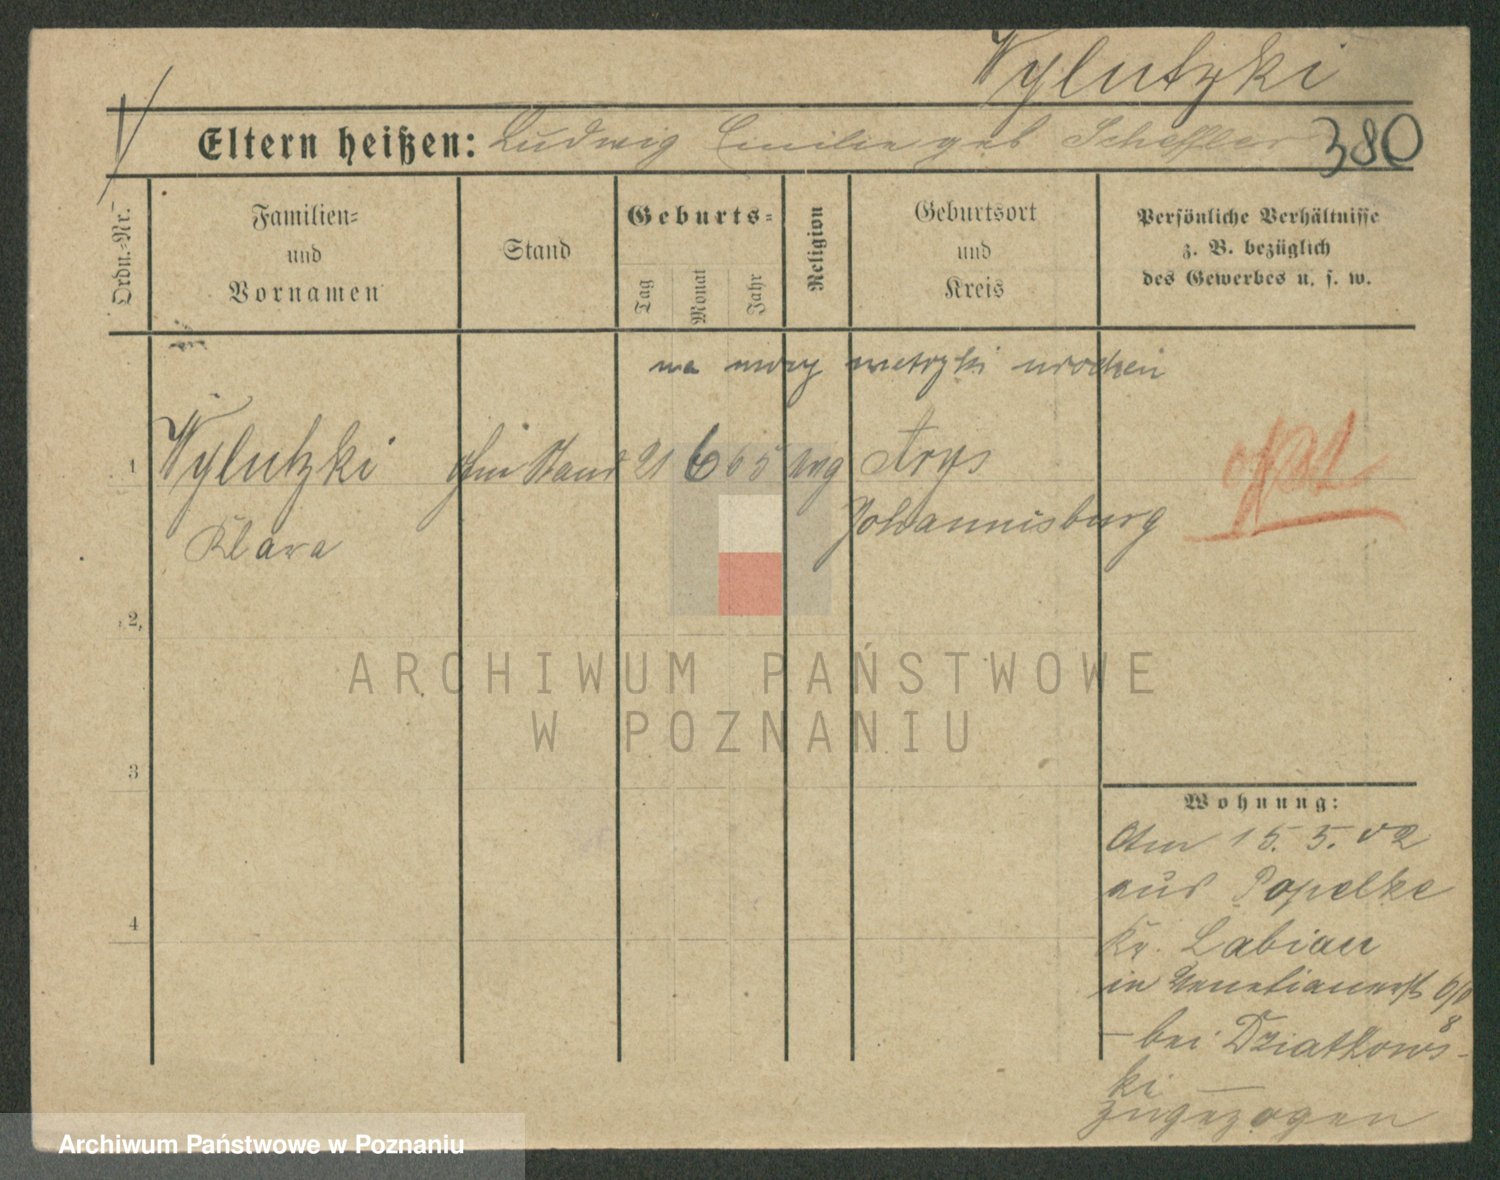 Wylutzki
Eltern heißen: Ludwig Emilie geb Scheffler 380
Ordn.-Nr.
Familien-
und
Vornamen
Stand
Geburts-
Tag
Monat
Jahr
Religion
Geburtsort
und
Kreis
Persönliche Verhältnisse
z. B. bezüglich
des Gewerbes u. s. w.
na mocy metryki urodzen
1 Wylutzki ohne Stand 21 6 65 evg Arys
Klara Johannisburg
2,
3
4
ARCHIWUM PAŃSTWOWE
W POZNANIU
Wohnung:
Am 15. 5. 02
aus Popelke
Kr. Labiau
in Venetianerst
– bei Dziatkows-
ki –
zugezogen
Archiwum Państwowe w Poznaniu